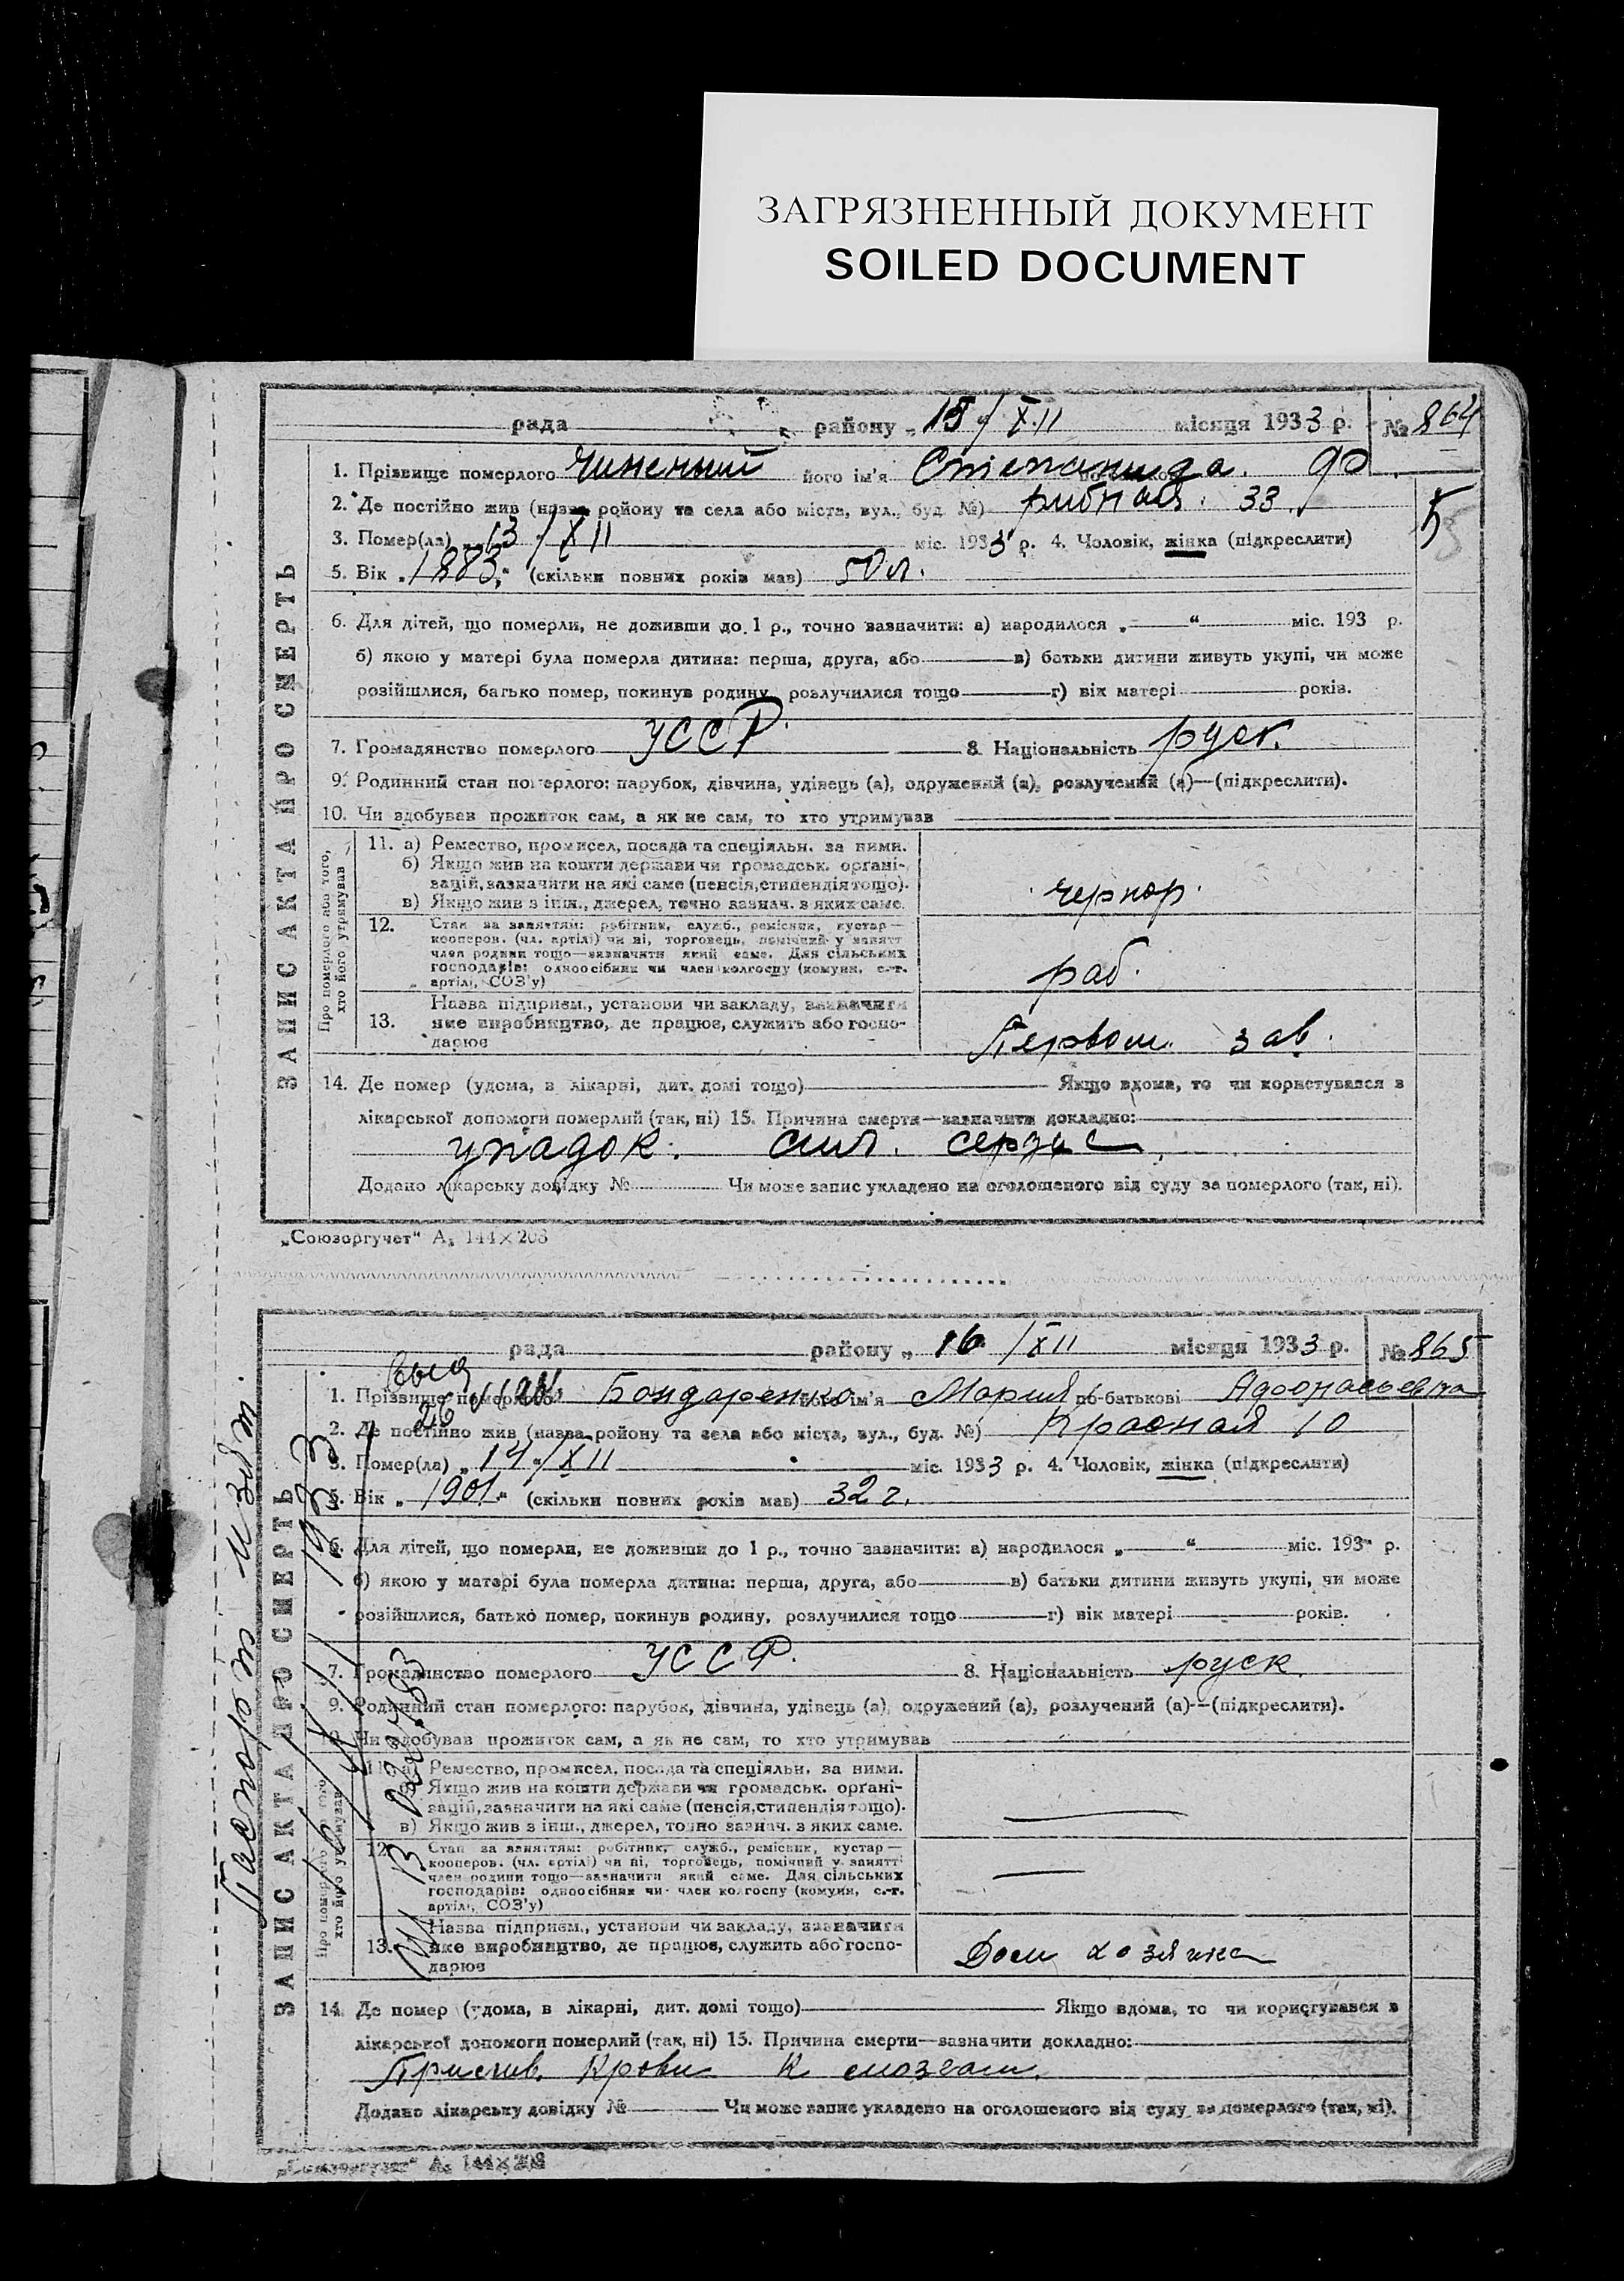 ЗАГРЯЗНЕННЫЙ ДОКУМЕНТ
SOILED DOCUMENT
рада району „15“/XII місяця 1933 р. № 864
1. Прізвище померлого його ім'я Степанида
2. Де постійно жив (назва району та села або міста, вул., буд. №) рибная 33
3. Помер(ла) „13“/XII міс. 1933 р. 4. Чоловік, жінка (підкреслити)
5. Вік „1883“ (скільки повних років мав) 50 л.
6. Для дітей, що померли, не доживши до 1 р., точно зазначити: а) народилося „ “ міс. 193 р.
б) якою у матері була померла дитина: перша, друга, або в) батьки дитини живуть укупі, чи може
розійшлися, батько помер, покинув родину, розлучилися тощо г) вік матері років.
7. Громадянство померлого УССР. 8. Національність руск.
9. Родинний стан померлого: парубок, дівчина, удівець (а), одружений (а), розлучений (а)—(підкреслити).
10. Чи здобував прожиток сам, а як не сам, то хто утримував
ЗАПИС АКТА ПРО СМЕРТЬ
Про померлого або того,
хто його утримував
11. а) Ремество, промисел, посада та спеціяльн. за ними.
б) Якщо жив на кошти держави чи громадськ. органі-
зацій, зазначити на які саме (пенсія, стипендія тощо).
в) Якщо жив з інш., джерел, точно зазнач. з яких саме.
чернор.
12. Стан за заняттям: робітник, служб., ремісник, кустар—
кооперов. (чл. артілі) чи ні, торговець, помічний у занятт
член родини тощо—зазначити який саме. Для сільських
господарів: одноосібник чи член колгоспу (комуни, с.-г.
артілі, СОЗ'у)
раб.
13. Назва підприєм., установи чи закладу, зазначити
яке виробництво, де працює, служить або госпо-
дарює
Первом. зав.
14. Де помер (удома, в лікарні, дит. домі тощо) Якщо вдома, то чи користувався з
лікарської допомоги померлий (так, ні) 15. Причина смерти—зазначити докладно:
упадок. сил. сердца
Додано лікарську довідку № Чи може запис укладено на оголошеного від суду за померлого (так, ні).
„Союзоргучет“ А₅ 144×203
рада району „16“/XII місяця 1933 р. № 865
1. Прізвище померлого Бондаренко його ім'я Мария по-батькові Афонасьевна
2. Де постійно жив (назва району та села або міста, вул., буд. №) Красная 10
3. Помер(ла) „14“/XII міс. 1933 р. 4. Чоловік, жінка (підкреслити)
5. Вік „1901“ (скільки повних років мав) 32 г.
6. Для дітей, що померли, не доживши до 1 р., точно зазначити: а) народилося „ “ міс. 193 р.
б) якою у матері була померла дитина: перша, друга, або в) батьки дитини живуть укупі, чи може
розійшлися, батько помер, покинув родину, розлучилися тощо г) вік матері років.
7. Громадянство померлого УССР. 8. Національність руск.
9. Родинний стан померлого: парубок, дівчина, удівець (а), одружений (а), розлучений (а)—(підкреслити).
10. Чи здобував прожиток сам, а як не сам, то хто утримував
ЗАПИС АКТА ПРО СМЕРТЬ
Паспорт изят.
16/XII 1933
Про померлого або того,
хто його утримував
11. а) Ремество, промисел, посада та спеціяльн. за ними.
б) Якщо жив на кошти держави чи громадськ. органі-
зацій, зазначити на які саме (пенсія, стипендія тощо).
в) Якщо жив з інш., джерел, точно зазнач. з яких саме.
12. Стан за заняттям: робітник, служб., ремісник, кустар—
кооперов. (чл. артілі) чи ні, торговець, помічний у занятті
член родини тощо—зазначити який саме. Для сільських
господарів: одноосібник чи член колгоспу (комуни, с.-г.
артілі, СОЗ'у)
13. Назва підприєм., установи чи закладу, зазначити
яке виробництво, де працює, служить або госпо-
дарює
Дом хозяйка
14. Де помер (удома, в лікарні, дит. домі тощо) Якщо вдома, то чи користувався з
лікарської допомоги померлий (так, ні) 15. Причина смерти—зазначити докладно:
Прилив. Крови К мозгам.
Додано лікарську довідку № Чи може запис укладено на оголошеного від суду за померлого (так, ні).
„Союзоргучет“ А₅ 144×203